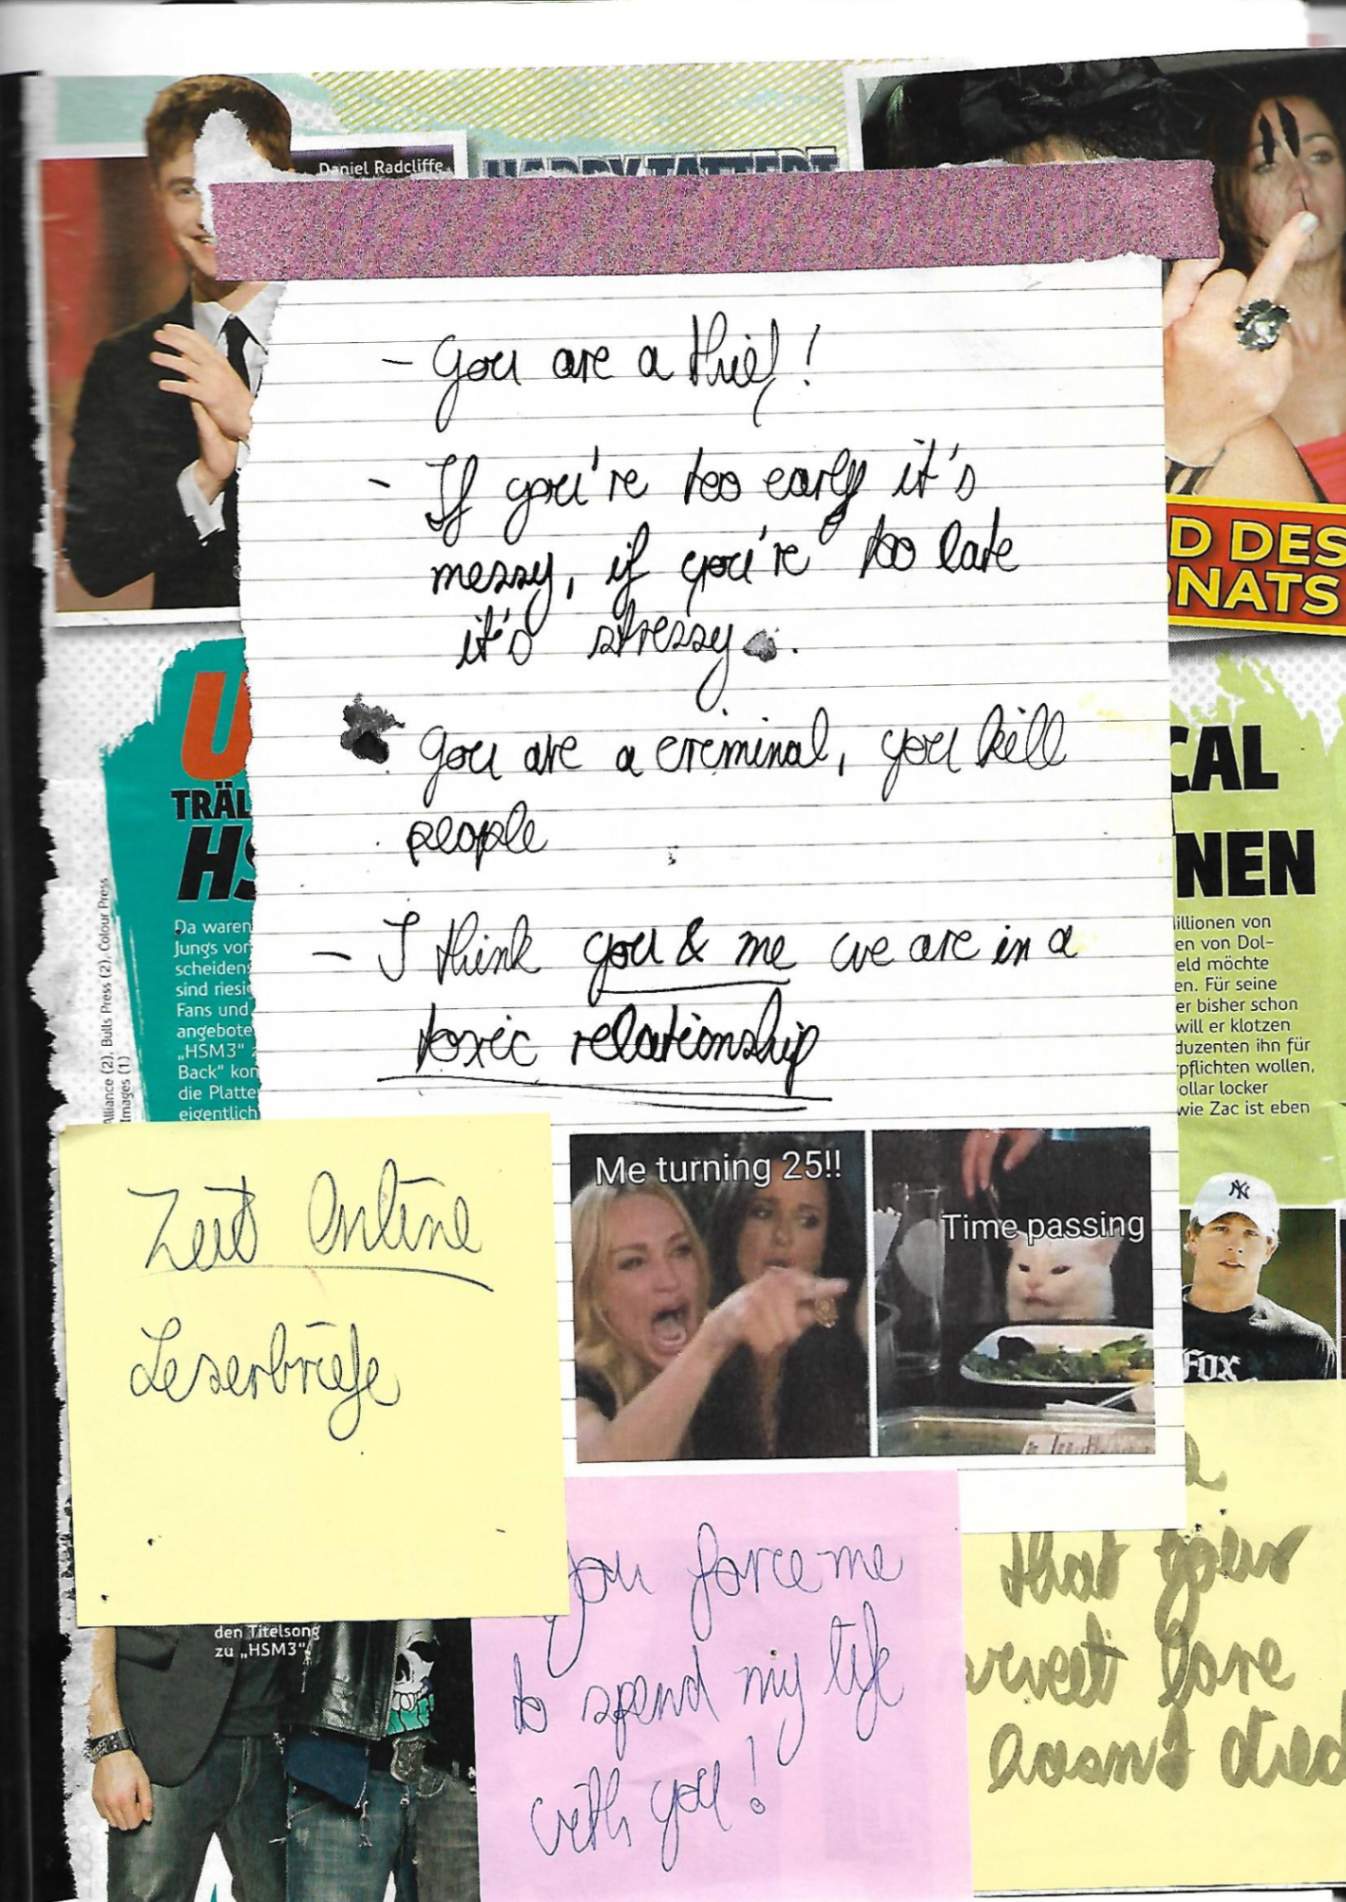 Daniel Radcliffe
HARRY TÄTTERT
- you are a thief!
- If you're too early it's
messy, if you're too late
it's stressy.
you are a creminal, you kill
people
- I think you & me we are in a
toxic relationship
D DES
NATS
U
TRÄL
HS
Da waren
Jungs vor
scheiden
sind riesi
Fans und
angebote
„HSM3"
Back" kon
die Platte
eigentlich
Alliance (2), Bulls Press (2), Colour Press
Images (1)
CAL
NEN
illionen von
en von Dol-
eld möchte
en. Für seine
er bisher schon
will er klotzen
duzenten ihn für
rpflichten wollen,
ollar locker
wie Zac ist eben
Zeit Online
Leserbriefe
Me turning 25!!
Time passing
NY
FOX
den Titelsong
zu „HSM3"
you force me
to spend my life
with you!
that your
sweet love
hasn't died